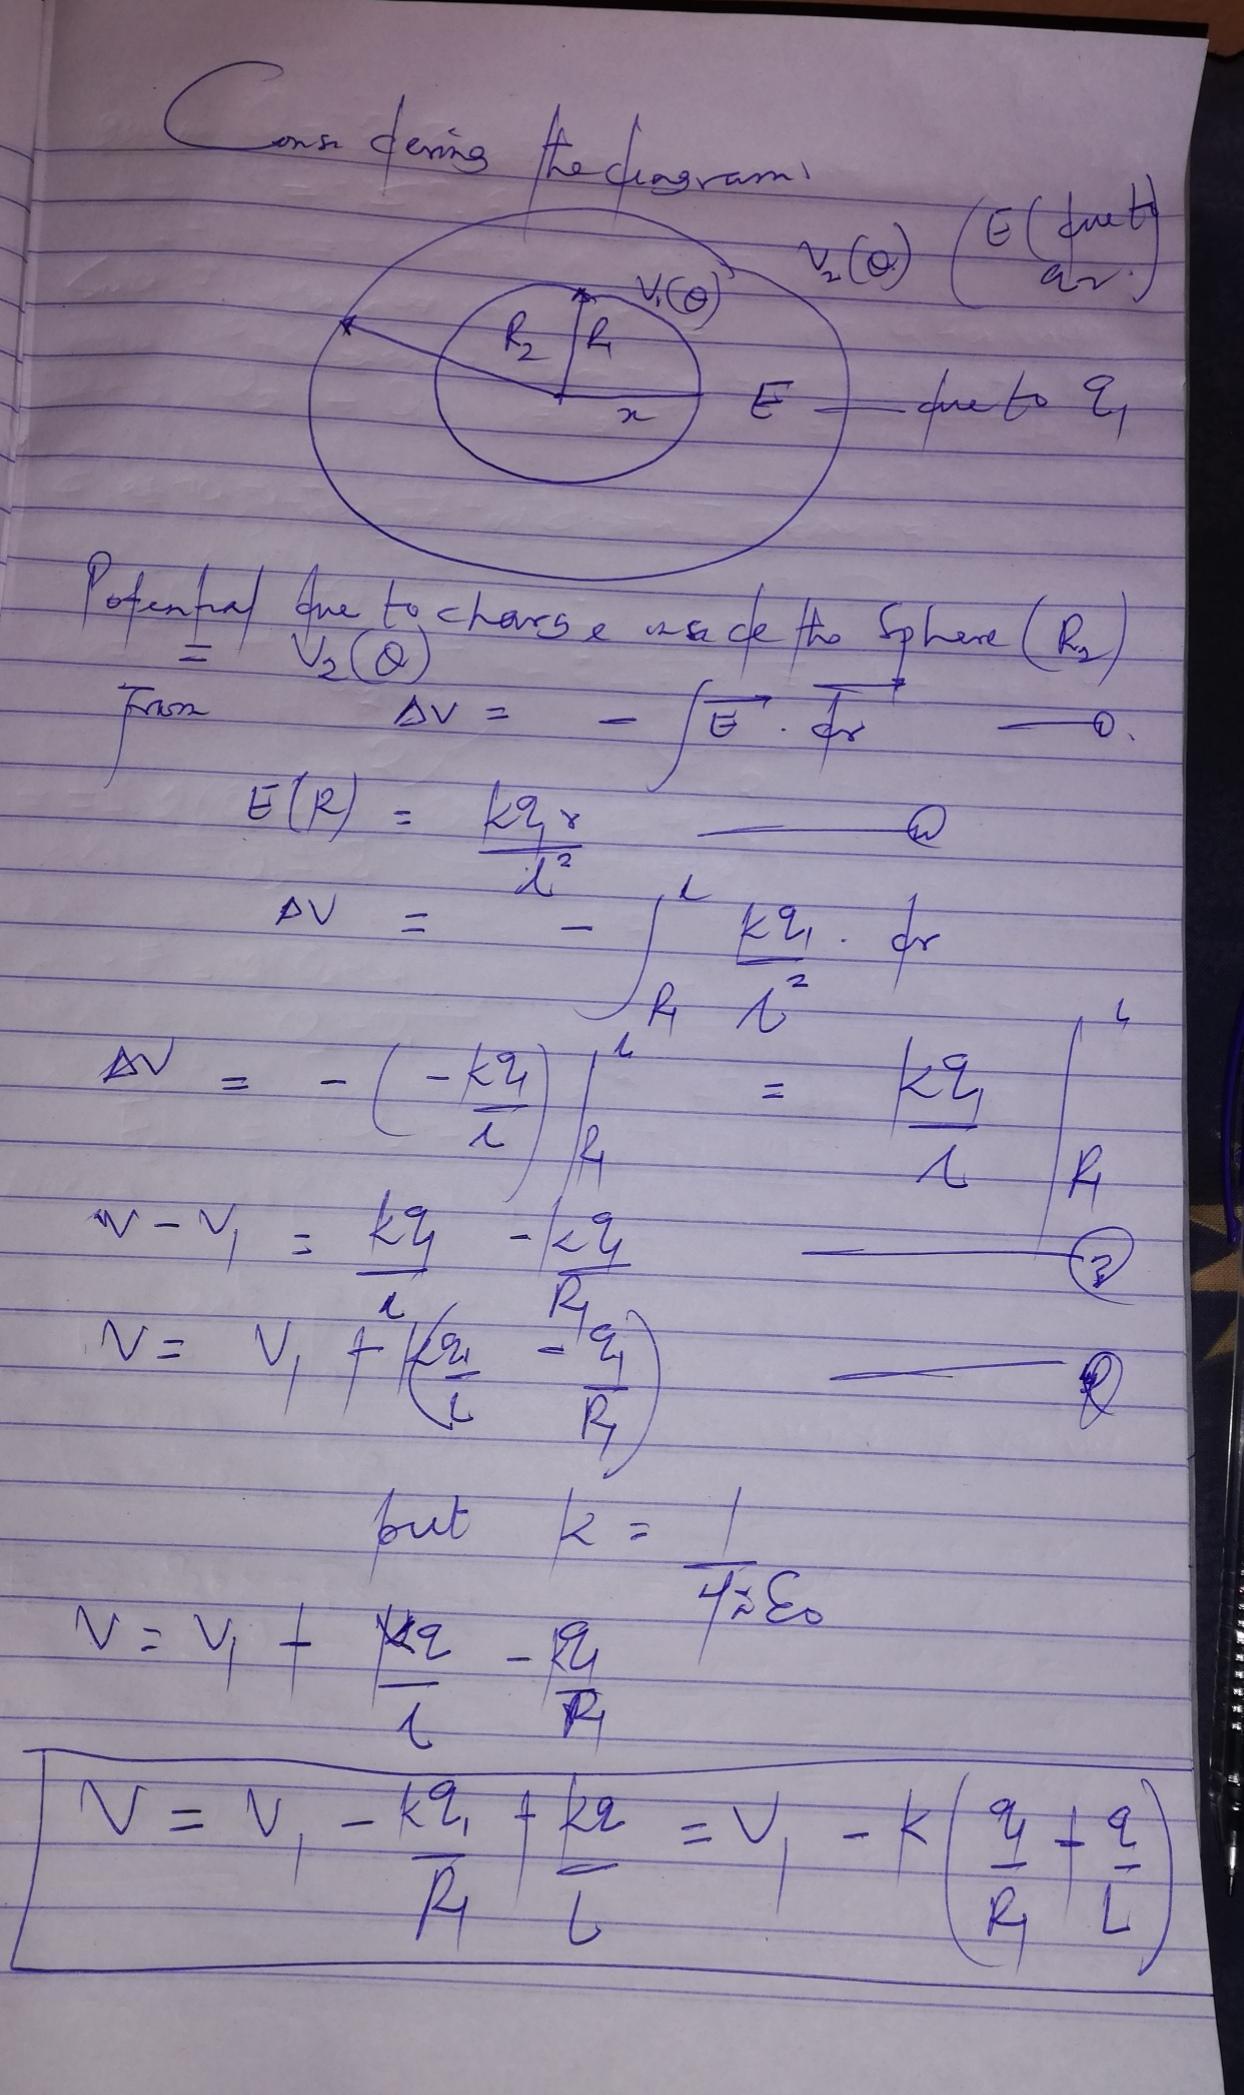 Considering the diagram,
V₂(θ) (E (due to q₂.)
V₁(θ)
R₂ R₁
x E — due to q₁
Potential due to charge inside the sphere (R₂)
= V₂(θ)
From ΔV = - ∫ E⃗ . dr⃗ — ①.
E(R) = kq₁r / r² — ②
ΔV = - ∫_{R₁}^{r} kq₁ / r² . dr
ΔV = - (-kq₁ / r) |_{R₁}^{r} = kq₁ / r |_{R₁}^{r}
V - V₁ = kq₁ / r - kq₁ / R₁ — ③
V = V₁ + k(q₁ / r - q₁ / R₁)
but k = 1 / 4πε₀
V = V₁ + kq / r - kq₁ / R₁
V = V₁ - kq₁ / R₁ + kq / r = V₁ - k (q₁ / R₁ + q / r)